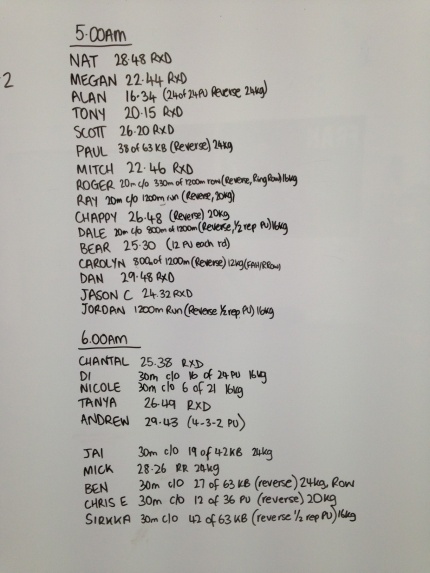 5.00AM
2
NAT 28.48 RXD
MEGAN 22.44 RXD
ALAN 16.34 (24 of 24 PU Reverse 24kg)
TONY 20.15 RXD
SCOTT 26.20 RXD
PAUL 38 of 63 KB (Reverse) 24kg
MITCH 22.46 RXD
ROGER 20m c/o 330m of 1200m row (Reverse, Ring Row) 16kg
RAY 20m c/o 1200m run (Reverse, 20kg)
CHAPPY 26.48 (Reverse) 20kg
DALE 20m c/o 800m of 1200m (Reverse, 1/2 rep PU) 16kg
BEAR 25.30 (12 PU each rd)
CAROLYN 800m of 1200m (Reverse) 12kg
DAN 29.48 RXD
JASON C 24.32 RXD
JORDAN 1200m Run (Reverse 1/2 rep PU) 16kg
6.00AM
CHANTAL 25.38 RXD
DI 30m c/o 16 of 24 PU 16kg
NICOLE 30m c/o 6 of 21 16kg
TANYA 26.49 RXD
ANDREW 29.43 (4-3-2 PU)
JAI 30m c/o 19 of 42 KB 24kg
MICK 28.26 RR 24kg
BEN 30m c/o 27 of 63 KB (reverse) 24kg, Row
CHRIS E 30m c/o 12 of 36 PU (reverse) 20kg
SIRKKA 30m c/o 42 of 63 KB (reverse 1/2 rep PU) 16kg